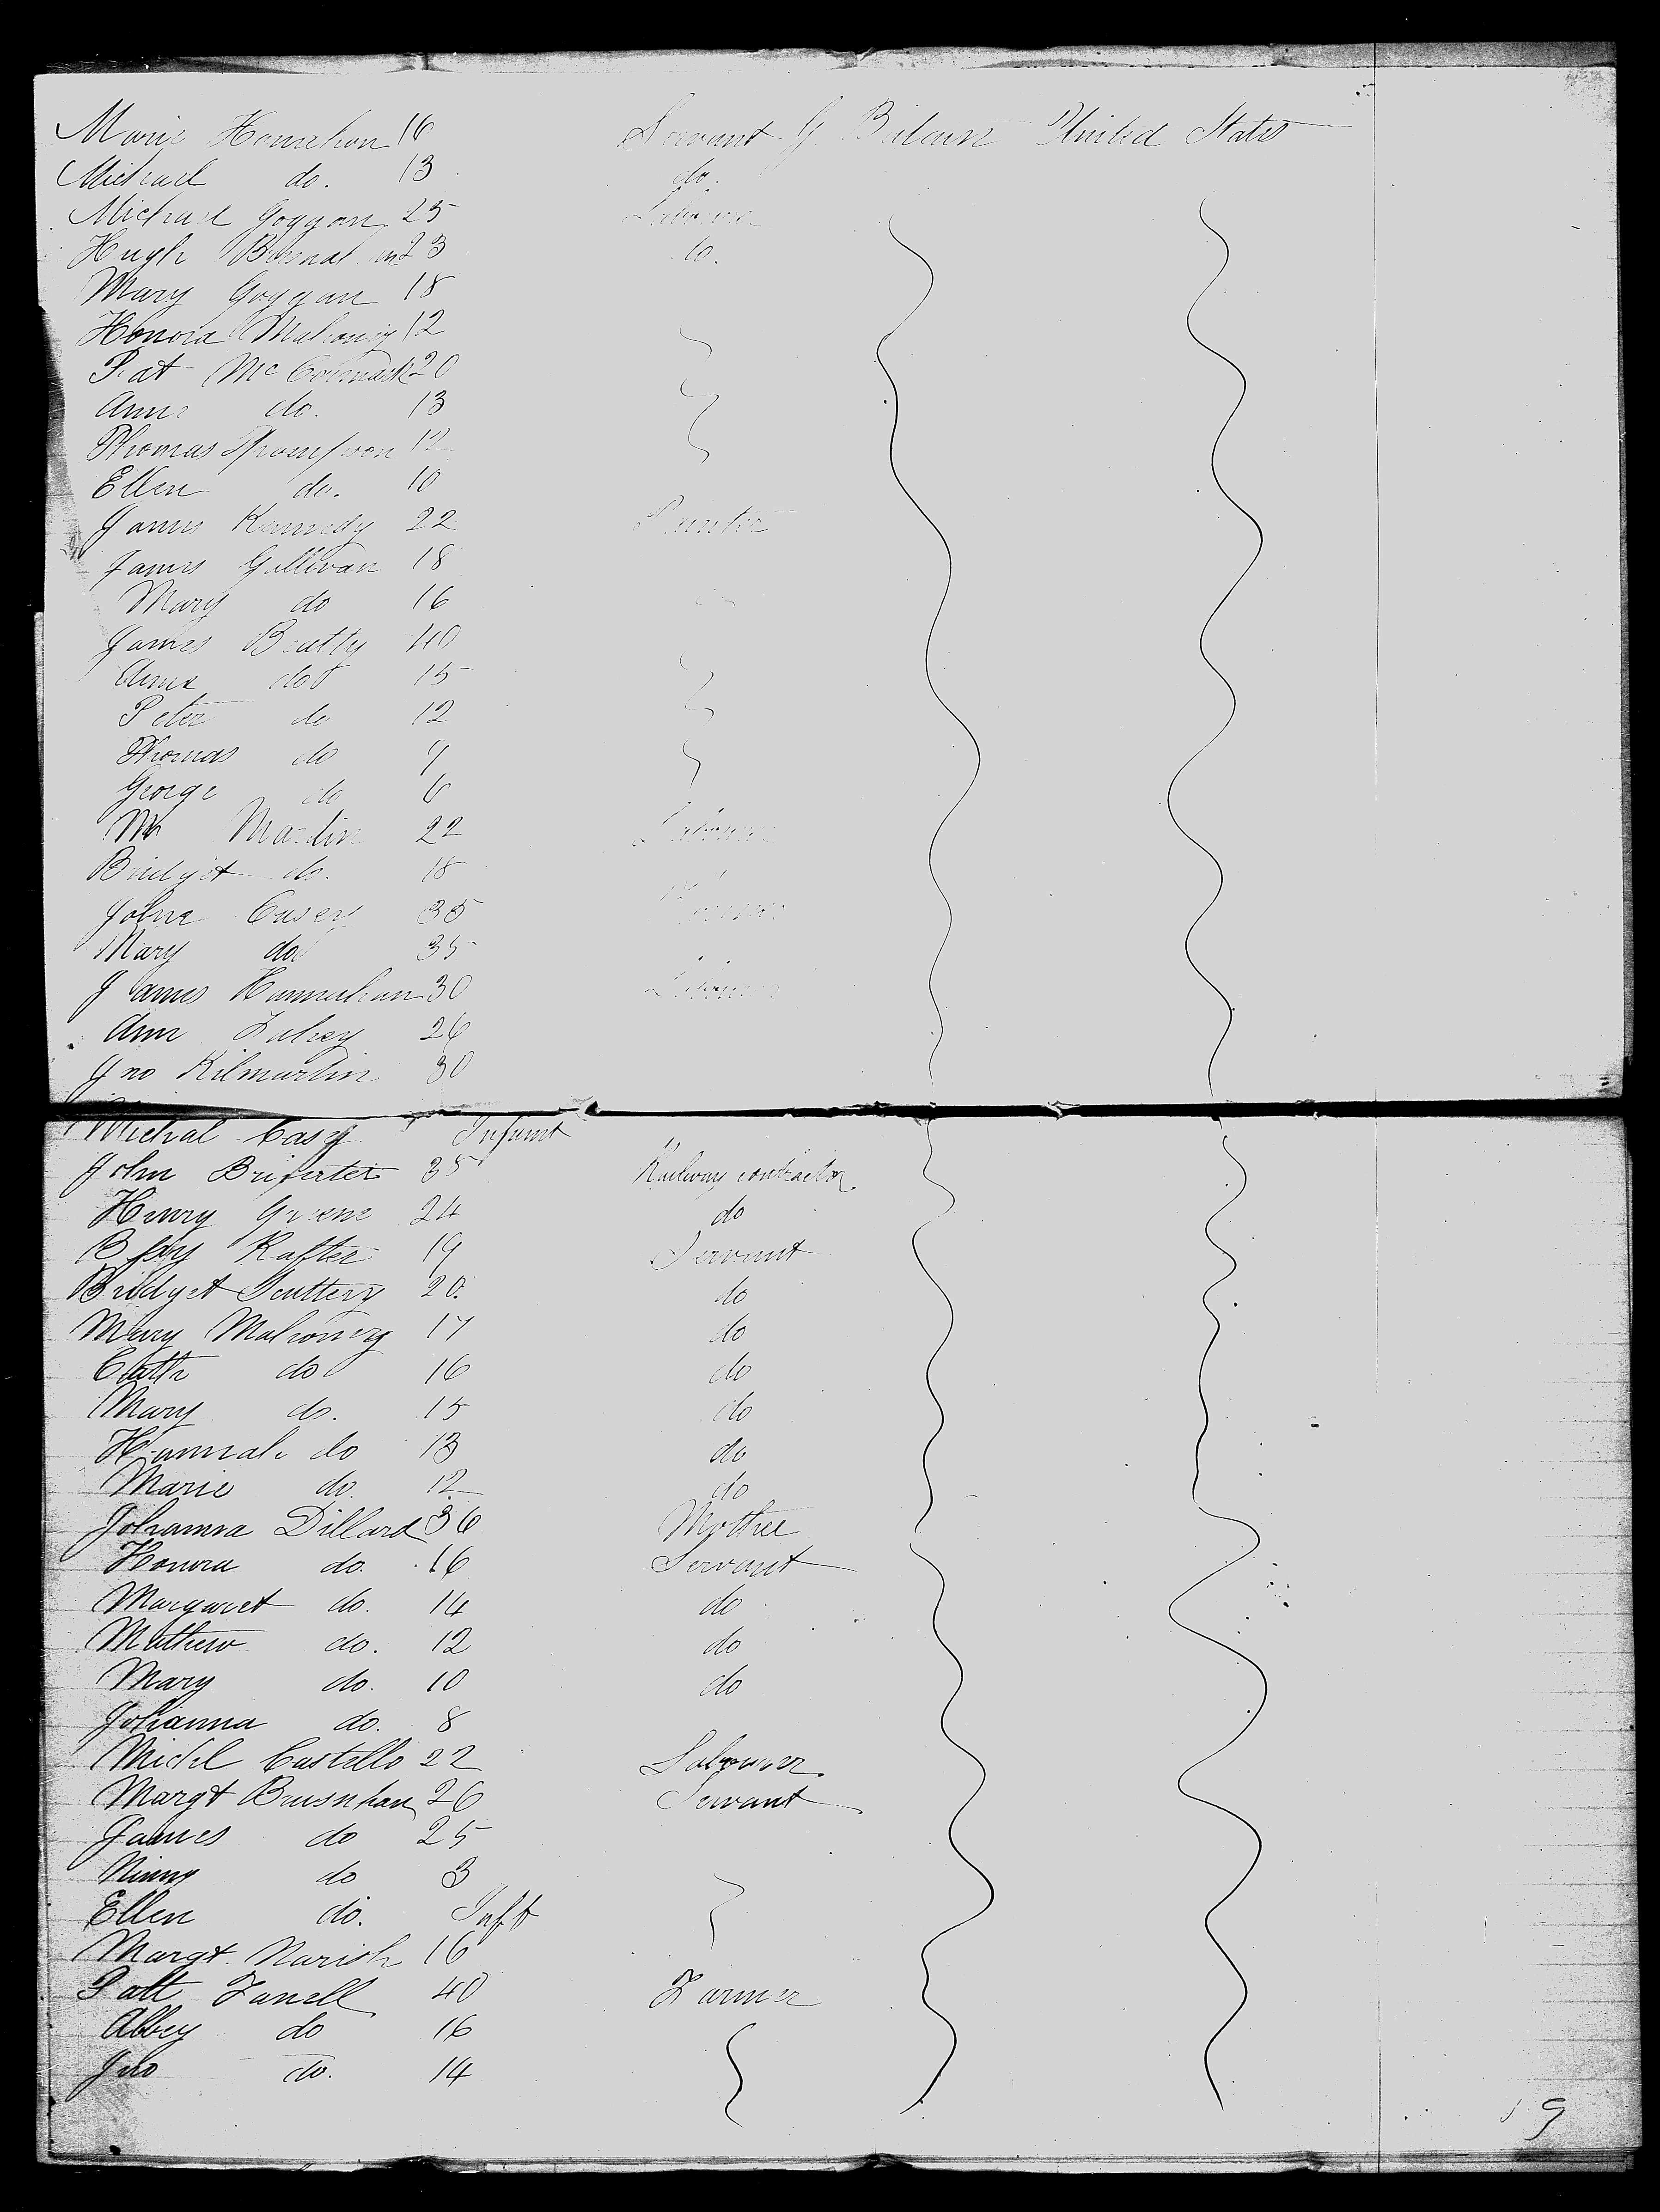 Marie Hourehon 16 Servant G Britain United States
Michael do. 13 do.
Michael Goggan 25 Labourer
Hugh 23 do.
Mary Goggan 18
Honora Mahoney 12
Pat McCormack 20
Anne do. 13
Thomas Thompson 12
Ellen do. 10
James Kennedy 22
James Gullivan 18
Mary do 16
James Beatty 40
Anne do 15
Peter do 12
Thomas do 9
George do 6
Wm Martin 22 Labourer
Bridget do. 18
John Casey 35
Mary do 35
James Hannahan 30 Labourer
Ann Fahey 26
Jno Kilmartin 30
Michal Casy Infant
John 35 Railway contractor
Henry Greene 24 do
Bessy Rafter 19 Servant
Bridget Scuttery 20. do
Mary Mahoney 17 do
Cath do 16 do
Mary do. 15 do
Hannah do 13 do
Marie do. 12 do
Johanna Dillard 36 Mother
Honora do. 16 Servant
Margaret do. 14 do
Mathew do. 12 do
Mary do. 10 do
Johanna do. 8
Michl Costello 22 Labourer
Margt Brusnhan 26 Servant
James do 25
do 3
Ellen do. Inft
Margt. Narish 16
Patt Farrell 40 Farmer
Abbey do 16
Jno do. 14
9